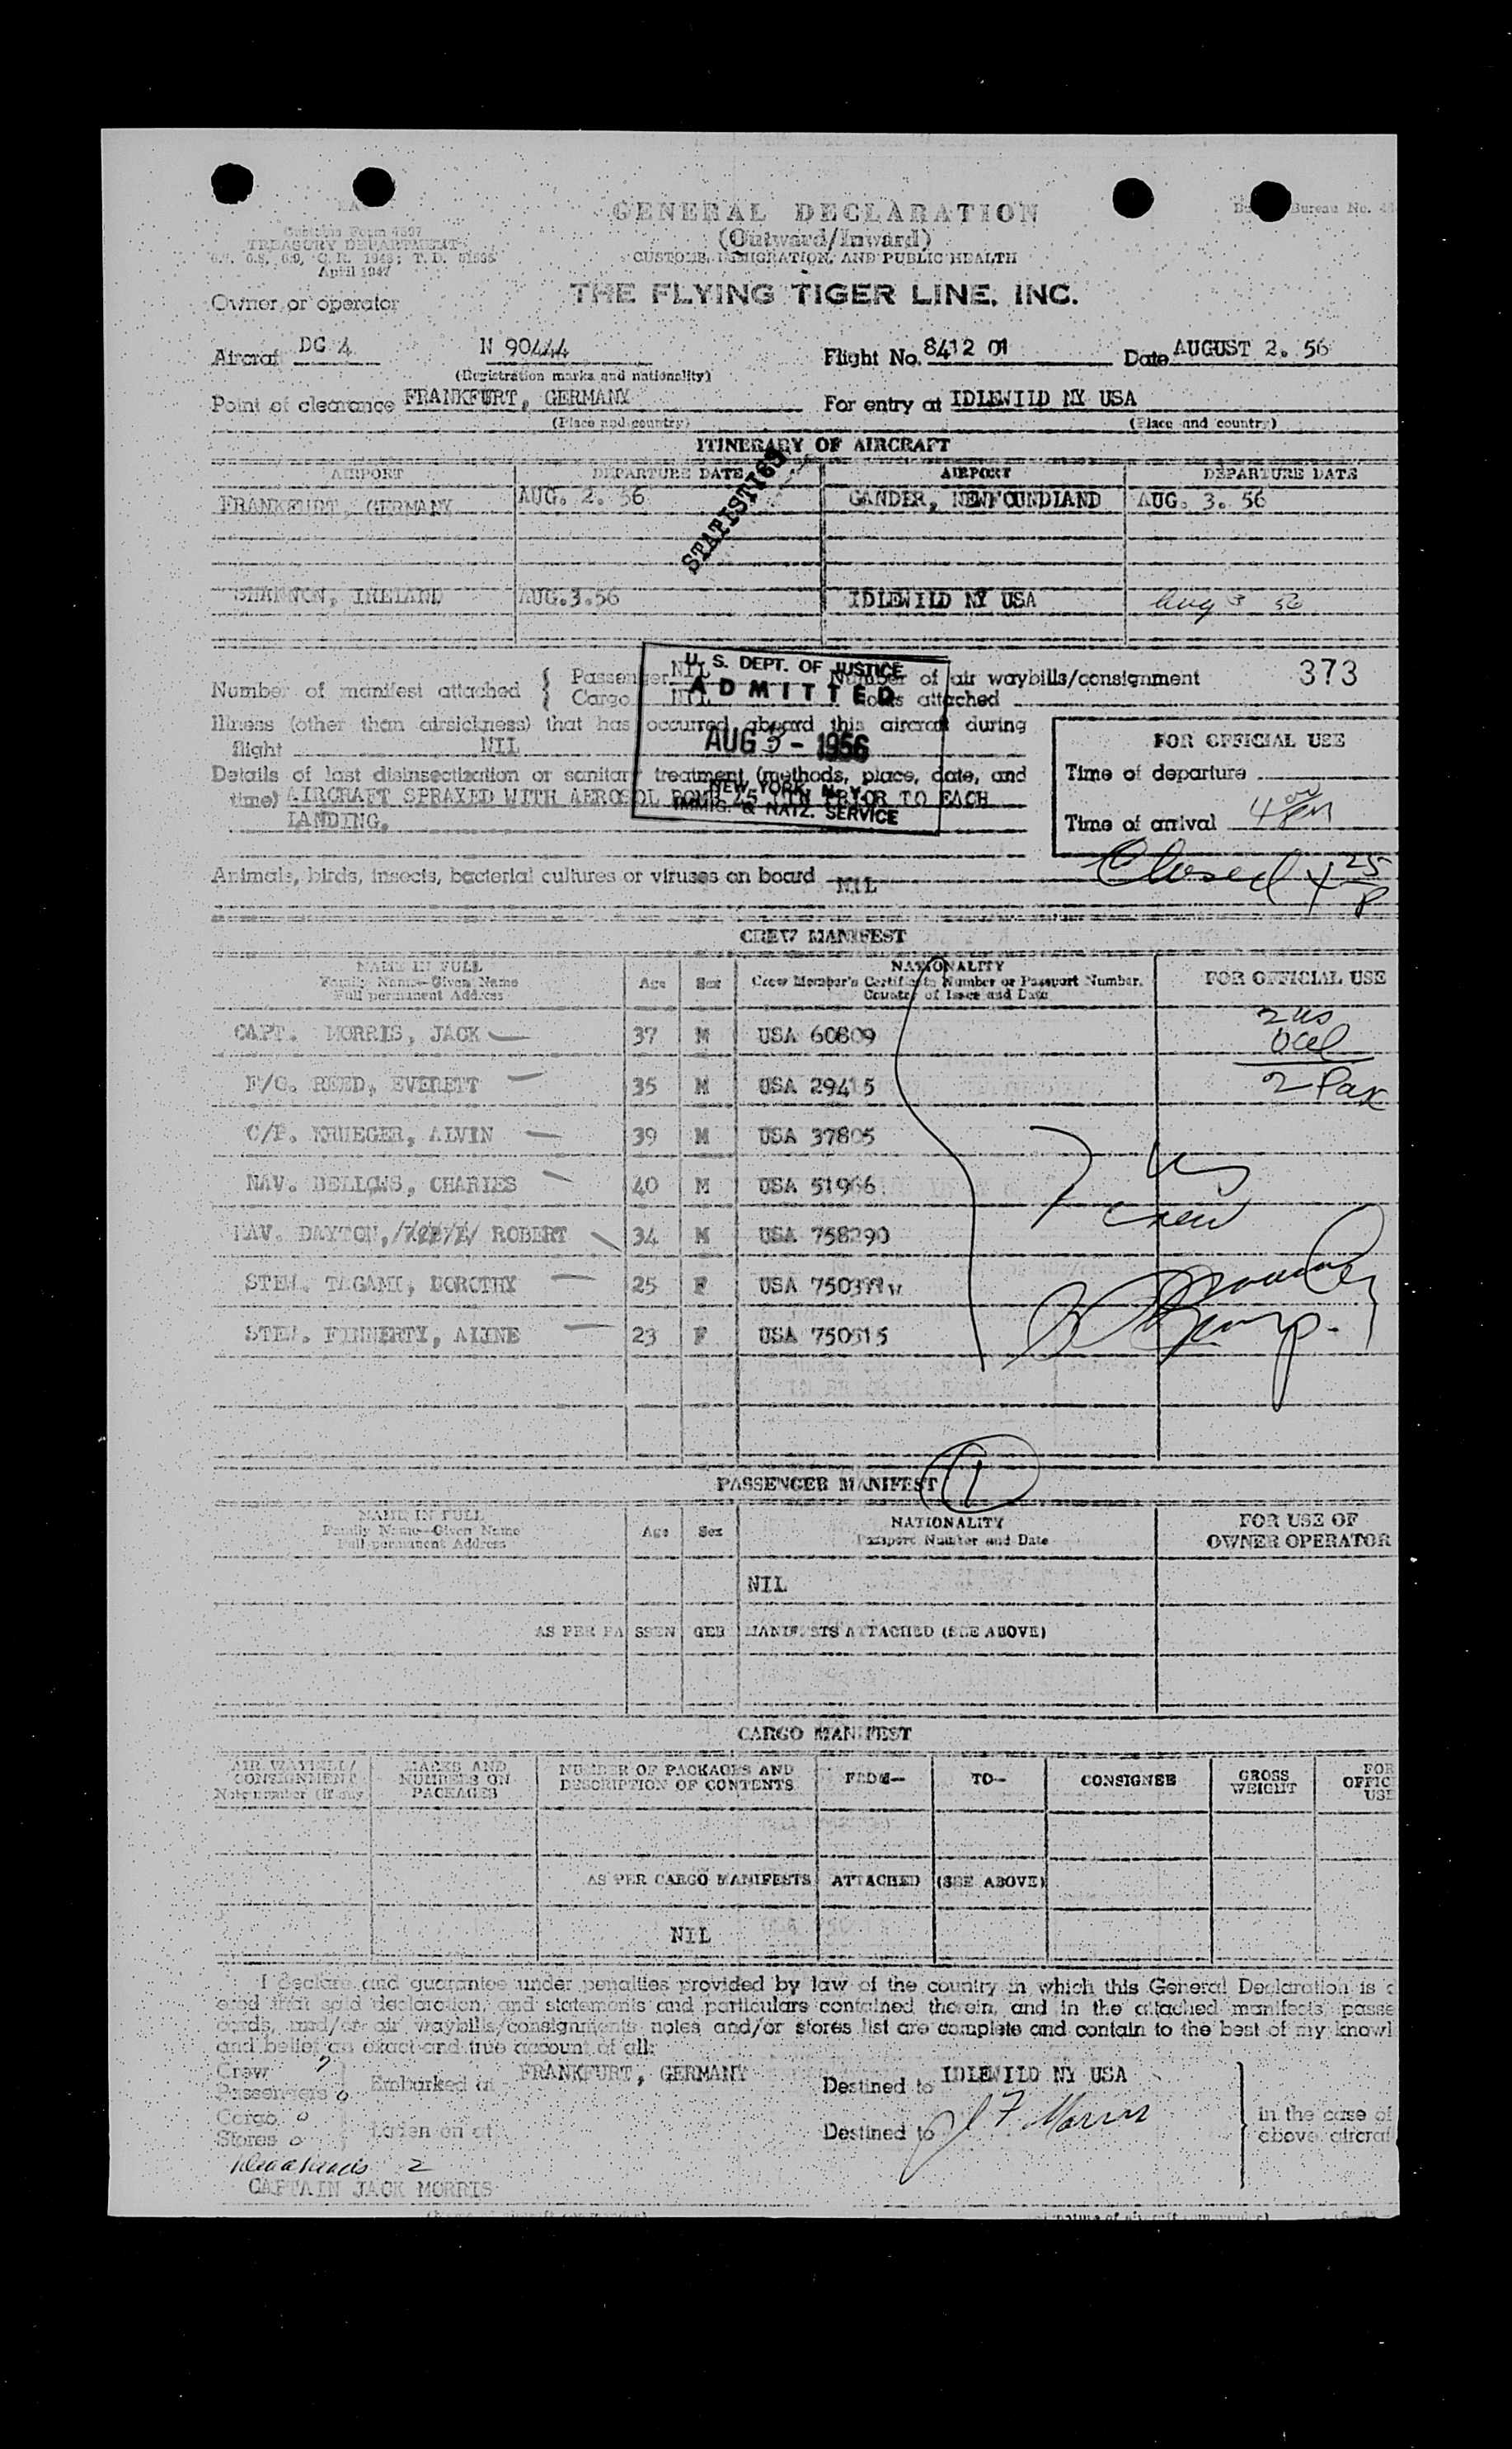 GENERAL DECLARATION
(Outward/Inward)
CUSTOMS, IMMIGRATION, AND PUBLIC HEALTH
Customs Form 4507
TREASURY DEPARTMENT
April 1947
Bureau No.
Owner or operator
THE FLYING TIGER LINE, INC.
Aircraf DC 4 N 90444 Flight No. 8412 01 Date AUGUST 2. 56
(Registration marks and nationality)
Point of clearance FRANKFURT, GERMANY For entry at IDLEWILD NY USA
(Place and country) (Place and country)
ITINERARY OF AIRCRAFT
AIRPORT DEPARTURE DATE AIRPORT DEPARTURE DATE
STATISTICS
FRANKFURT, GERMANY AUG. 2. 56 GANDER, NEWFOUNDLAND AUG. 3. 56
SHANNON, IRELAND AUG.3.56 IDLEWILD NY USA Aug 3 56
Number of manifest attached { Passenger NIL Number of air waybills/consignment 373
Cargo NIL notes attached
U. S. DEPT. OF JUSTICE
ADMITTED
AUG 3 - 1956
NEW YORK, N. Y.
IMMIG. & NATZ. SERVICE
Illness (other than airsickness) that has occurred aboard this aircraft during
flight NIL
Details of last disinsectization or sanitary treatment (methods, place, date, and
time) AIRCRAFT SPRAYED WITH AEROSOL BOMB 45 MIN PRIOR TO EACH
LANDING.
FOR OFFICIAL USE
Time of departure
Time of arrival 4 00 PM
Closed 4 25 P
Animals, birds, insects, bacterial cultures or viruses on board NIL
CREW MANIFEST
NAME IN FULL
Family Name—Given Name
Full permanent Address
Age Sex
NATIONALITY
Crew Member's Certificate Number or Passport Number,
Country of Issue and Date
FOR OFFICIAL USE
CAPT. MORRIS, JACK 37 M USA 60809
F/O. REED, EVERETT 35 M USA 29415
C/P. KRUEGER, ALVIN 39 M USA 37805
NAV. BELLOWS, CHARLES 40 M USA 51966
NAV. DAYTON, ROBERT 34 M USA 758290
STEW. TAGAMI, DOROTHY 25 F USA
STEW. FINNERTY, ALINE 23 F USA 750515
2 us
2 Pax
7
crew
1
PASSENGER MANIFEST
NAME IN FULL
Family Name—Given Name
Full permanent Address
Age Sex
NATIONALITY
Passport Number and Date
FOR USE OF
OWNER OPERATOR
NIL
AS PER PASSENGER MANIFESTS ATTACHED (SEE ABOVE)
CARGO MANIFEST
AIR WAYBILL/
CONSIGNMENT
Note number (if any
MARKS AND
NUMBERS ON
PACKAGES
NUMBER OF PACKAGES AND
DESCRIPTION OF CONTENTS
FROM— TO— CONSIGNEE
GROSS
WEIGHT
FOR
OFFIC
USE
AS PER CARGO MANIFESTS ATTACHED (SEE ABOVE)
NIL
I declare and guarantee under penalties provided by law of the country in which this General Declaration is d
ered that said declaration, and statements and particulars contained therein, and in the attached manifests, passe
cords, and/or air waybills/consignments notes and/or stores list are complete and contain to the best of my knowl
and belief an exact and true account of all:
Crew 7
Passengers 0
Embarked in FRANKFURT, GERMANY Destined to IDLEWILD NY USA
Cargo 0
Stores 0
Laden on at Destined to
in the case of
above aircraf
J F Morris
Deadheads 2
CAPTAIN JACK MORRIS